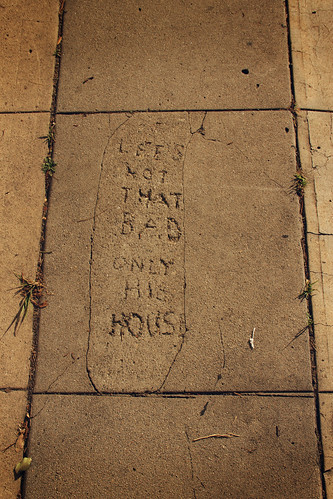 LEE'S
NOT
THAT
BAD
ONLY
HIS
HOUSE